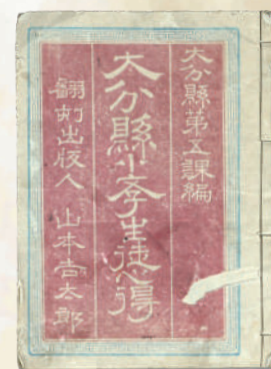 大分縣第五課編
大分縣小学生徒心得
翻刻出版人 山本吉太郎